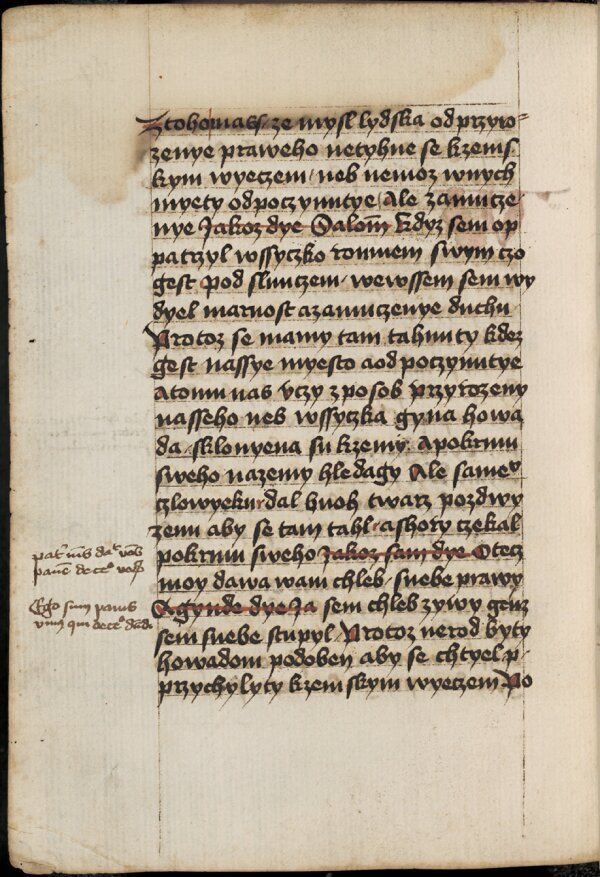 Ztoho mass / ze mysl lydska od przyro-
zenye praweho netyhne se kzems
kym wyeczem / neb nemoz wnych
myety odpoczynutye Ale zamucze-
nye Jakoz dye Salom̄ kdyz sem op
patrzyl wssyczko rozumem swym czo
gest pod sluncem wewssem sem wy
dyel marnost azamuczenye duchu
Protoz se mamy tam tahnuty kdez
gest nassye myesto aod poczynutye
Atomu nas vczy zposob przyrozeny
nasseho neb wssyczka gyna howa
da sklonyena su kzemy. Apokrmu
sweho nazemy hledagy Ale same
czlowyeku dal buoh twarz pozdwy
zenu aby se tam tahl ashory czekal
pokrmu sweho Jakoz sam dye Otecz
moy dawa wam chleb snebe prawy
Agynde dye Ja sem chleb zywy genz
sem snebe stupyl Protoz nerod byty
howadom podoben aby se chtyel p-
przychylyty kzemskym wyeczem Po
pat' m̄s dat vob
panē de ce° vob
Ego sum panis
viuꝰ qui de ce° d̄nd̄i